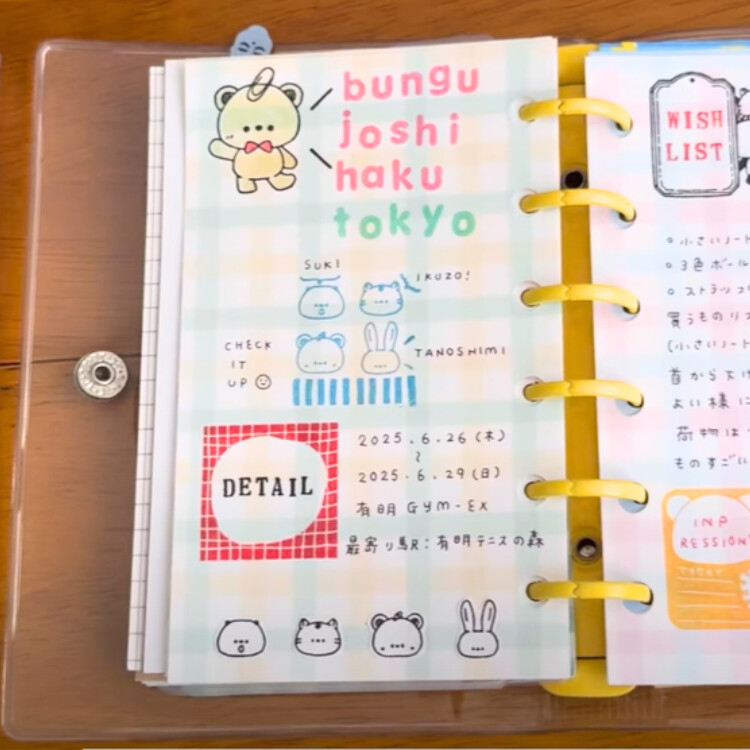 bungu
joshi
haku
tokyo
SUKI
IKUZO!
CHECK
IT
UP
TANOSHIMI
DETAIL
2025.6.26(木)
~
2025.6.29(日)
有明 GYM-EX
最寄り駅:有明テニスの森
WISH
LIST
小さいノート
3色ボール
ストラップ
買うものリス
(小さいノート
首からよけ
よい様に
荷物は
ものすごい
INP
RESSION